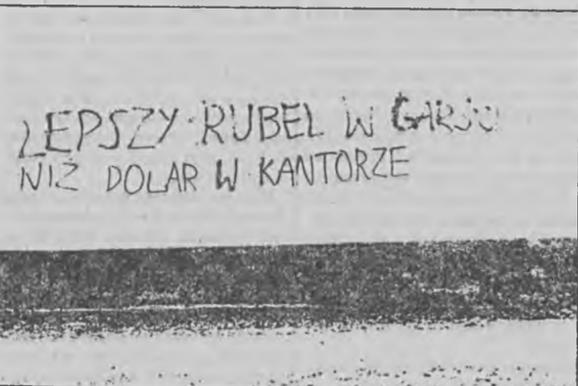 LEPSZY RUBEL W GARŚCI
NIŻ DOLAR W KANTORZE